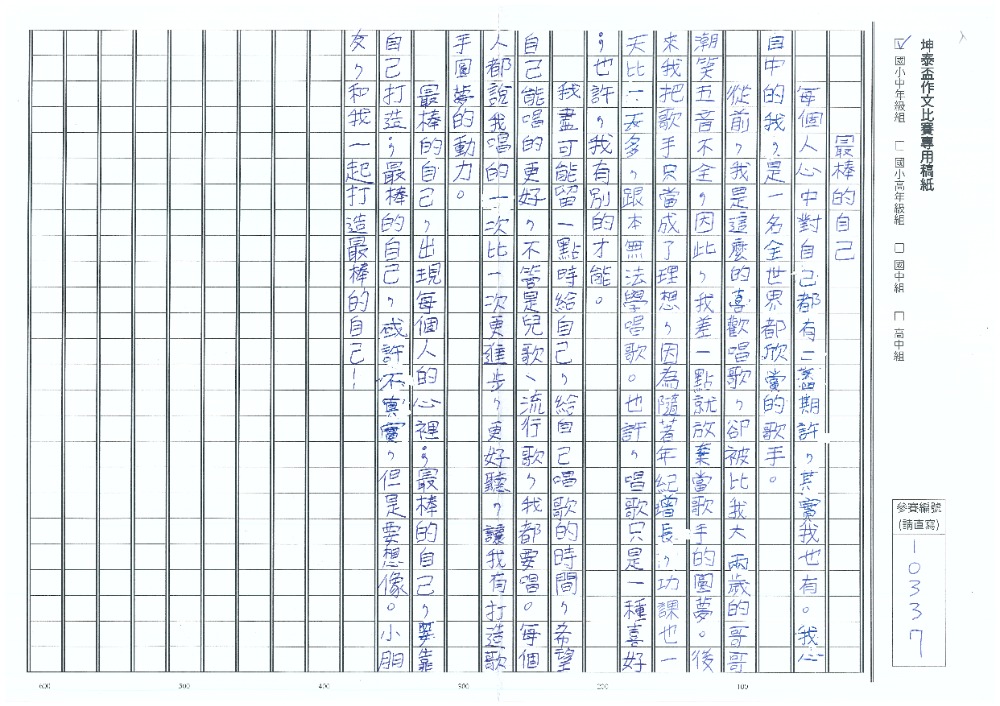 坤泰盃作文比賽專用稿紙
☑ 國小中年級組 □ 國小高年級組 □ 國中組 □ 高中組
參賽編號
(請直寫)
10337
最棒的自己
每個人心中對自己都有二舊期許，其實我也有。我心
目中的我，是一名全世界都欣賞的歌手。
從前，我是這麼的喜歡唱歌，卻被比我大兩歲的哥哥
潮笑五音不全，因此，我差一點就放棄當歌手的圓夢。後
來我把歌手只當成了理想，因為隨著年紀增長，功課也一
天比一天多，跟本無法學唱歌。也許，唱歌只是一種喜好
；也許，我有別的才能。
我盡可能留一點時給自己，給自己唱歌的時間，希望
自己能唱的更好，不管是兒歌、流行歌，我都要唱。每個
人都說我唱的一次比一次更進步，更好聽，讓我有打造歌
手圓夢的動力。
最棒的自己，出現每個人的心裡；最棒的自己，要靠
自己打造；最棒的自己，或許不真實，但是要想像。小朋
友，和我一起打造最棒的自己！
100
200
300
400
500
600